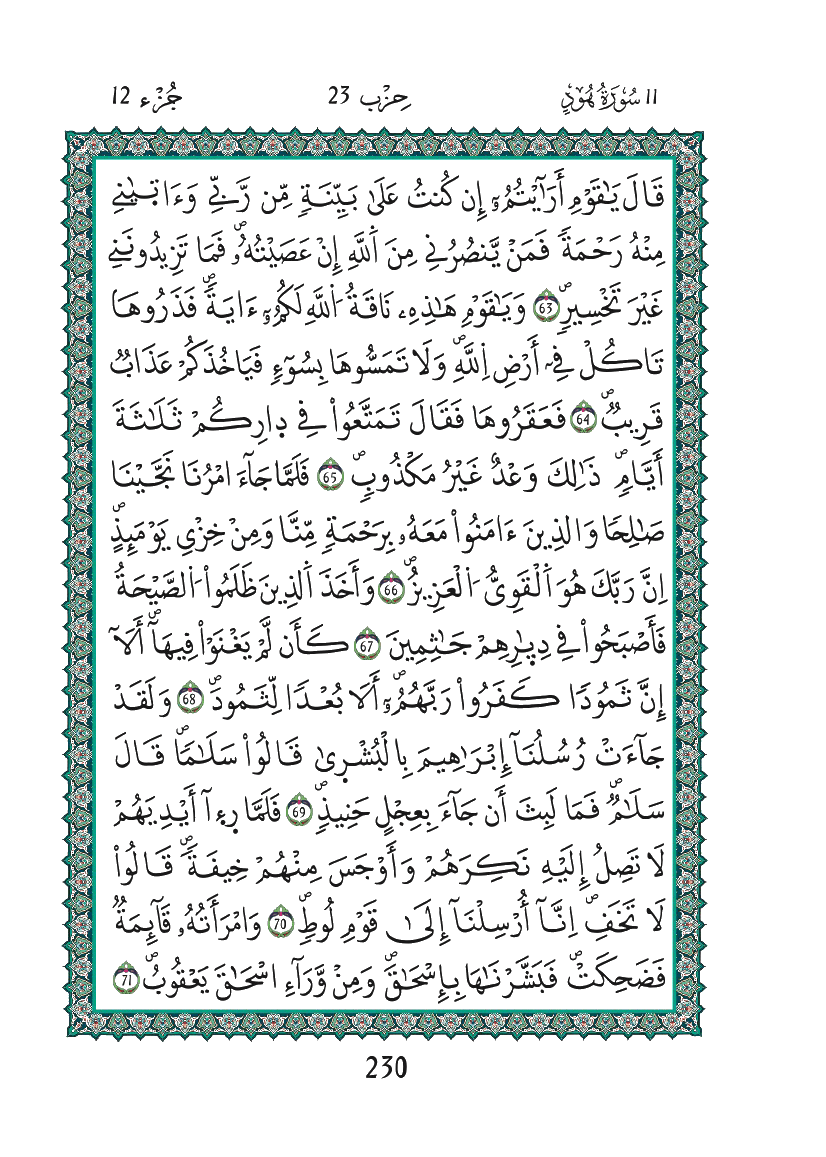 11 سُورَةُ هُودٍ حِزْب 23 جُزْء 12
قَالَ يَٰقَوْمِ أَرَٰٓيْتُمُۥٓ إِن كُنتُ عَلَىٰ بَيِّنَةٖ مِّن رَّبِّے وَءَات۪يٰنِے
مِنْهُ رَحْمَةٗ فَمَنْ يَّنصُرُنِے مِنَ اَ۬للَّهِ إِنْ عَصَيْتُهُۥۖ فَمَا تَزِيدُونَنِے
غَيْرَ تَخْسِيرٖۖ 63 وَيَٰقَوْمِ هَٰذِهِۦ نَاقَةُ اُ۬للَّهِ لَكُمُۥٓ ءَايَةٗۖ فَذَرُوهَا
تَاكُلْ فِےٓ أَرْضِ اِ۬للَّهِۖ وَلَا تَمَسُّوهَا بِسُوٓءٖ فَيَاخُذَكُمْ عَذَابٞ
قَرِيبٞۖ 64 فَعَقَرُوهَا فَقَالَ تَمَتَّعُواْ فِے د۪ارِكُمْ ثَلَٰثَةَ
أَيَّامٖۖ ذَٰلِكَ وَعْدٌ غَيْرُ مَكْذُوبٖۖ 65 فَلَمَّا جَآءَ امْرُنَا نَجَّيْنَا
صَٰلِحٗا وَالذِينَ ءَامَنُواْ مَعَهُۥ بِرَحْمَةٖ مِّنَّا وَمِنْ خِزْيِ يَوْمَئِذٍۖ
اِنَّ رَبَّكَ هُوَ اَ۬لْقَوِيُّ اُ۬لْعَزِيزُۖ 66 وَأَخَذَ اَ۬لذِينَ ظَلَمُواْ اُ۬لصَّيْحَةُ
فَأَصْبَحُواْ فِے دِيٰ۪رِهِمْ جَٰثِمِينَ 67 كَأَن لَّمْ يَغْنَوْاْ فِيهَآۖ أَلَآ
إِنَّ ثَمُودٗا كَفَرُواْ رَبَّهُمُۥٓۖ أَلَا بُعْدٗا لِّثَمُودَۖ 68 وَلَقَدْ
جَآءَتْ رُسُلُنَآ إِبْرَٰهِيمَ بِالْبُشْر۪يٰ قَالُواْ سَلَٰمٗاۖ قَالَ
سَلَٰمٞۖ فَمَا لَبِثَ أَن جَآءَ بِعِجْلٍ حَنِيذٖۖ 69 فَلَمَّا ر۪ء۪آ أَيْدِيَهُمْ
لَا تَصِلُ إِلَيْهِ نَكِرَهُمْ وَأَوْجَسَ مِنْهُمْ خِيفَةٗۖ قَالُواْ
لَا تَخَفِۖ اِنَّآ أُرْسِلْنَآ إِلَىٰ قَوْمِ لُوطٖۖ 70 وَامْرَأَتُهُۥ قَآئِمَةٞ
فَضَحِكَتْۖ فَبَشَّرْنَٰهَا بِإِسْحَٰقَۖ وَمِنْ وَّرَآءِ اسْحَٰقَ يَعْقُوبُۖ 71
230